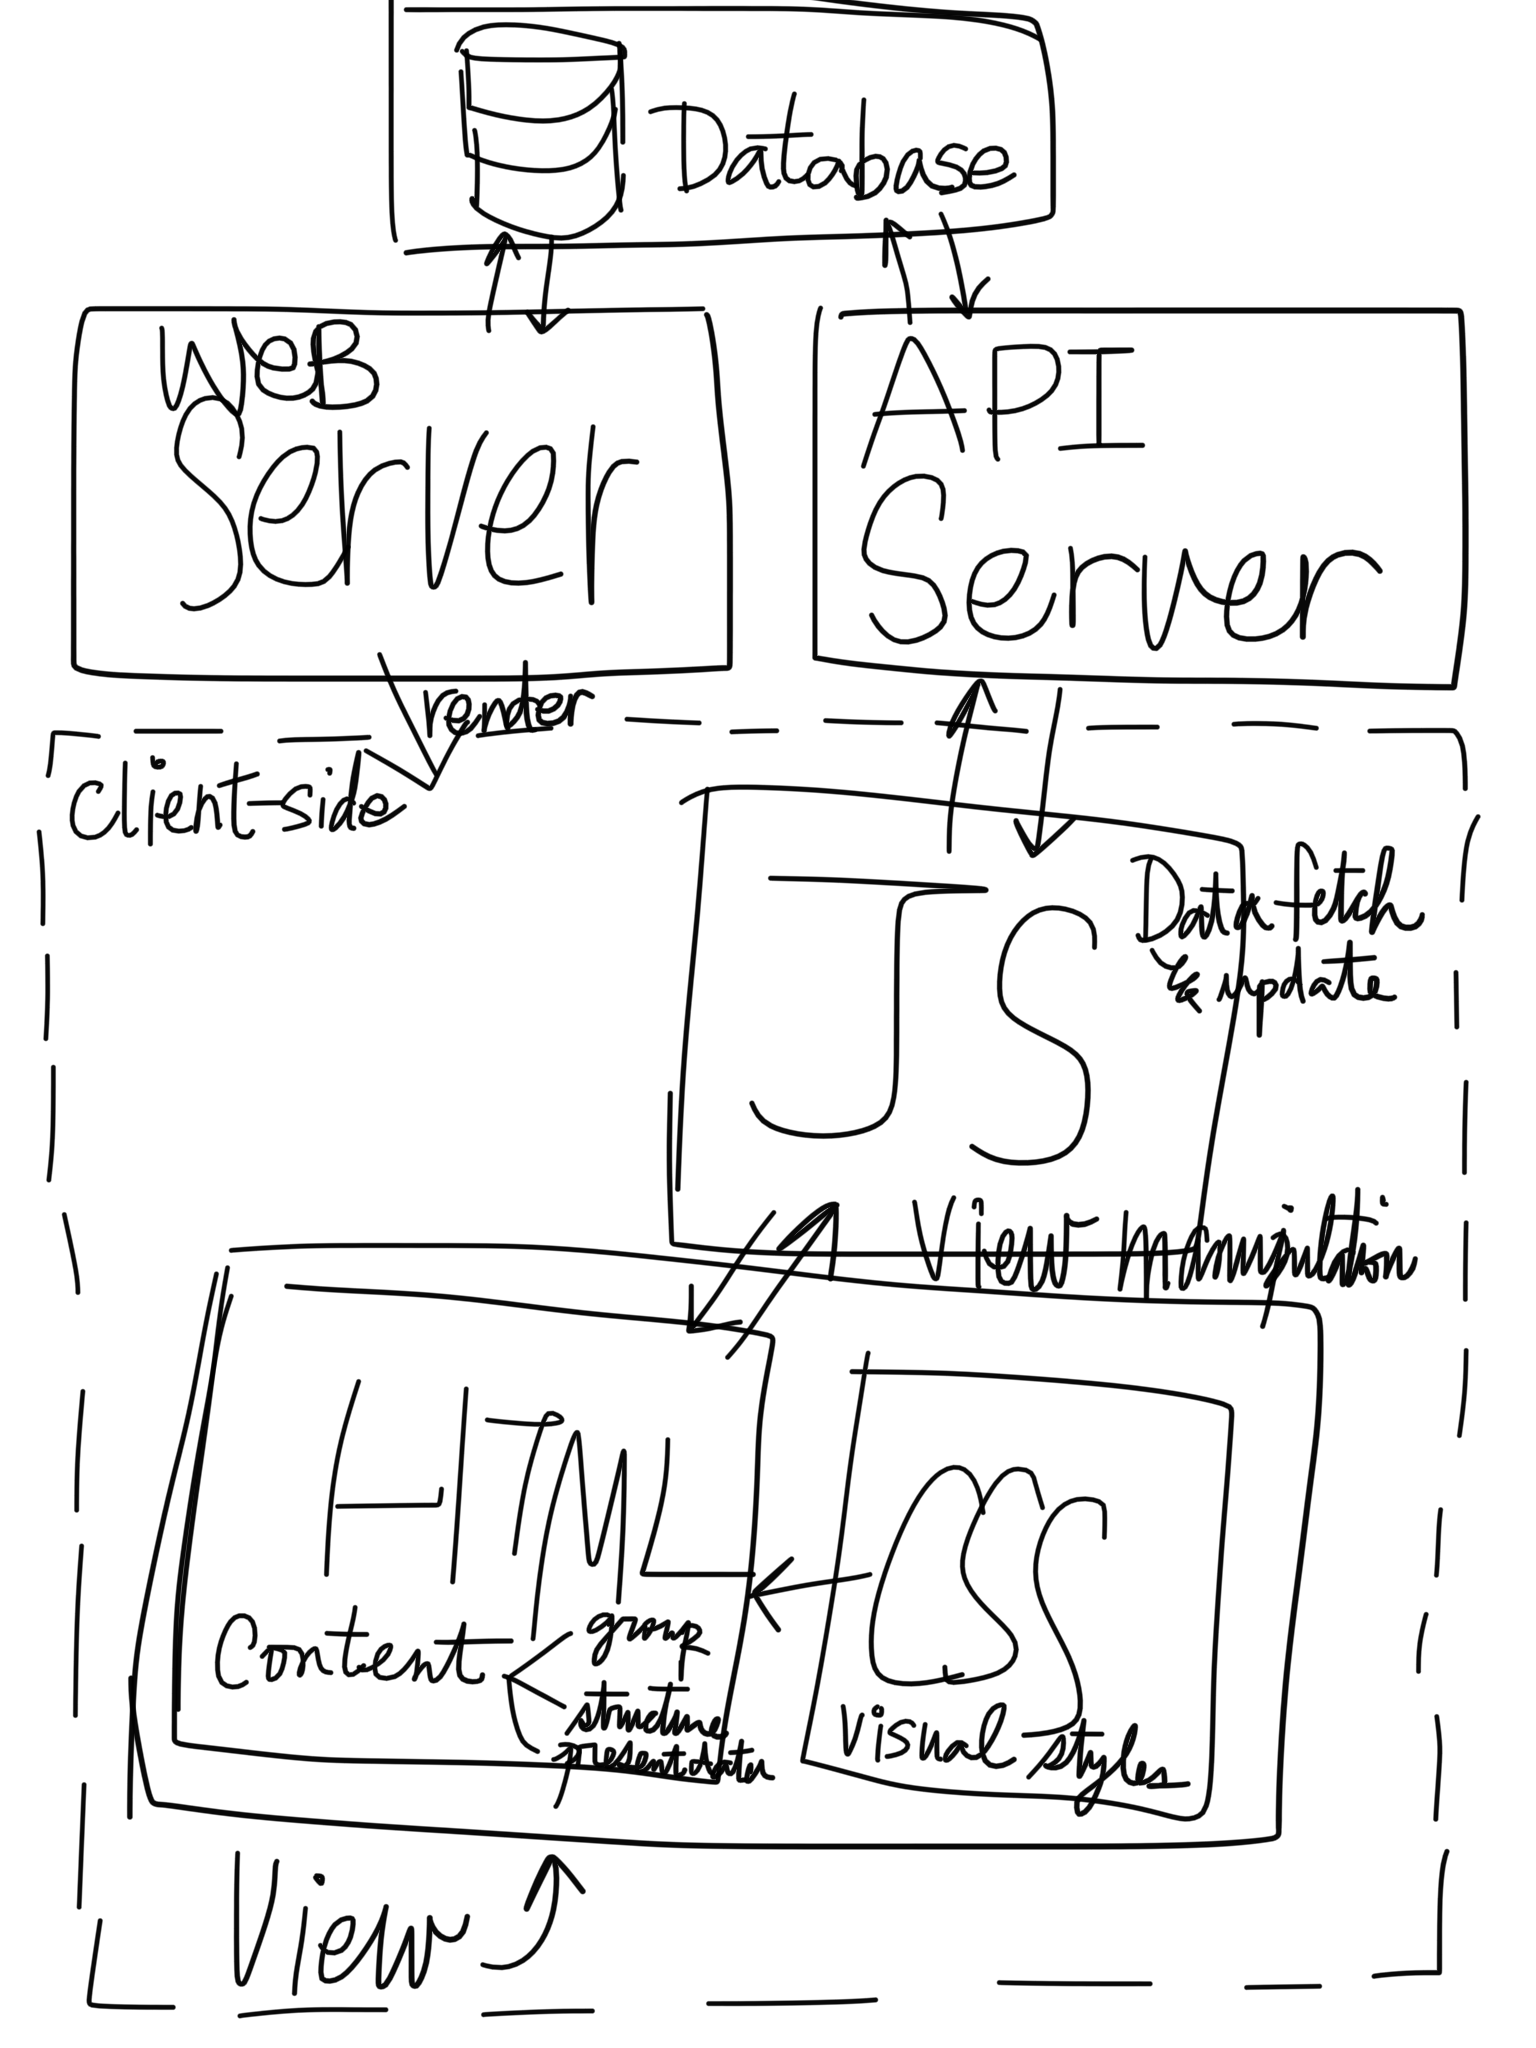 Database
WeB
Server
API
Server
render
client-side
JS
Data fetch
& update
View Manipultation
HTML
Content
group
structure
present data
CSS
visual styles
View